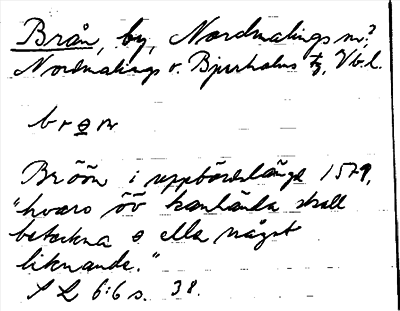 Brån, by, Nordmalings sn?
Nordmalings o. Bjurholms tg, Vb.l.
bron
Brõõn i uppbördslängd 1579,
"hvars õõ kanhända skall
beteckna o eller något
liknande."
S L 6:6 s. 38.